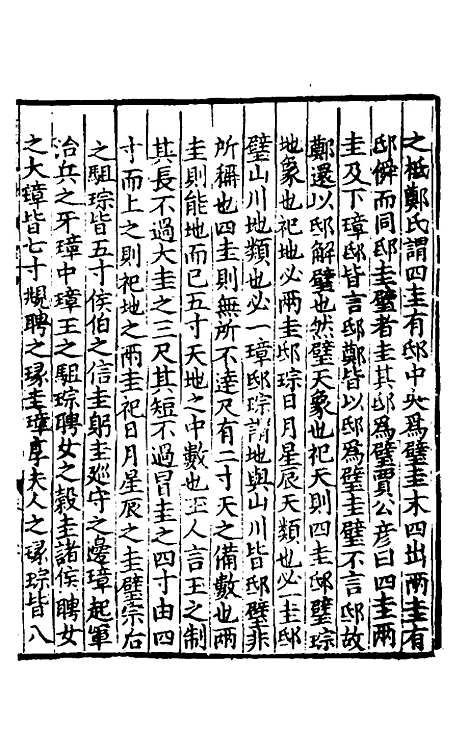 之柢鄭氏謂四圭有邸中央爲璧圭末四出兩圭有
邸僢而同邸圭璧者圭其邸爲璧賈公彦曰四圭兩
圭及下璋邸皆言邸鄭皆以邸爲璧圭璧不言邸故
鄭還以邸解璧也然璧天象也祀天則四圭邸璧琮
地象也祀地必兩圭邸琮日月星辰天類也必一圭邸
璧山川地類也必一璋邸琮謂地與山川皆邸璧非
所稱也四圭則無所不達尺有二寸天之備數也兩
圭則能地而已五寸天地之中數也玉人言玉之制
其長不過大圭之三尺其短不過冒圭之四寸由四
寸而上之則祀地之兩圭祀日月星辰之圭璧宗后
之駔琮皆五寸侯伯之信圭躬圭巡守之邊璋起軍
治兵之牙璋中璋王之駔琮聘女之穀圭諸侯聘女
之大璋皆七寸覜聘之瑑圭璋享夫人之瑑琮皆八